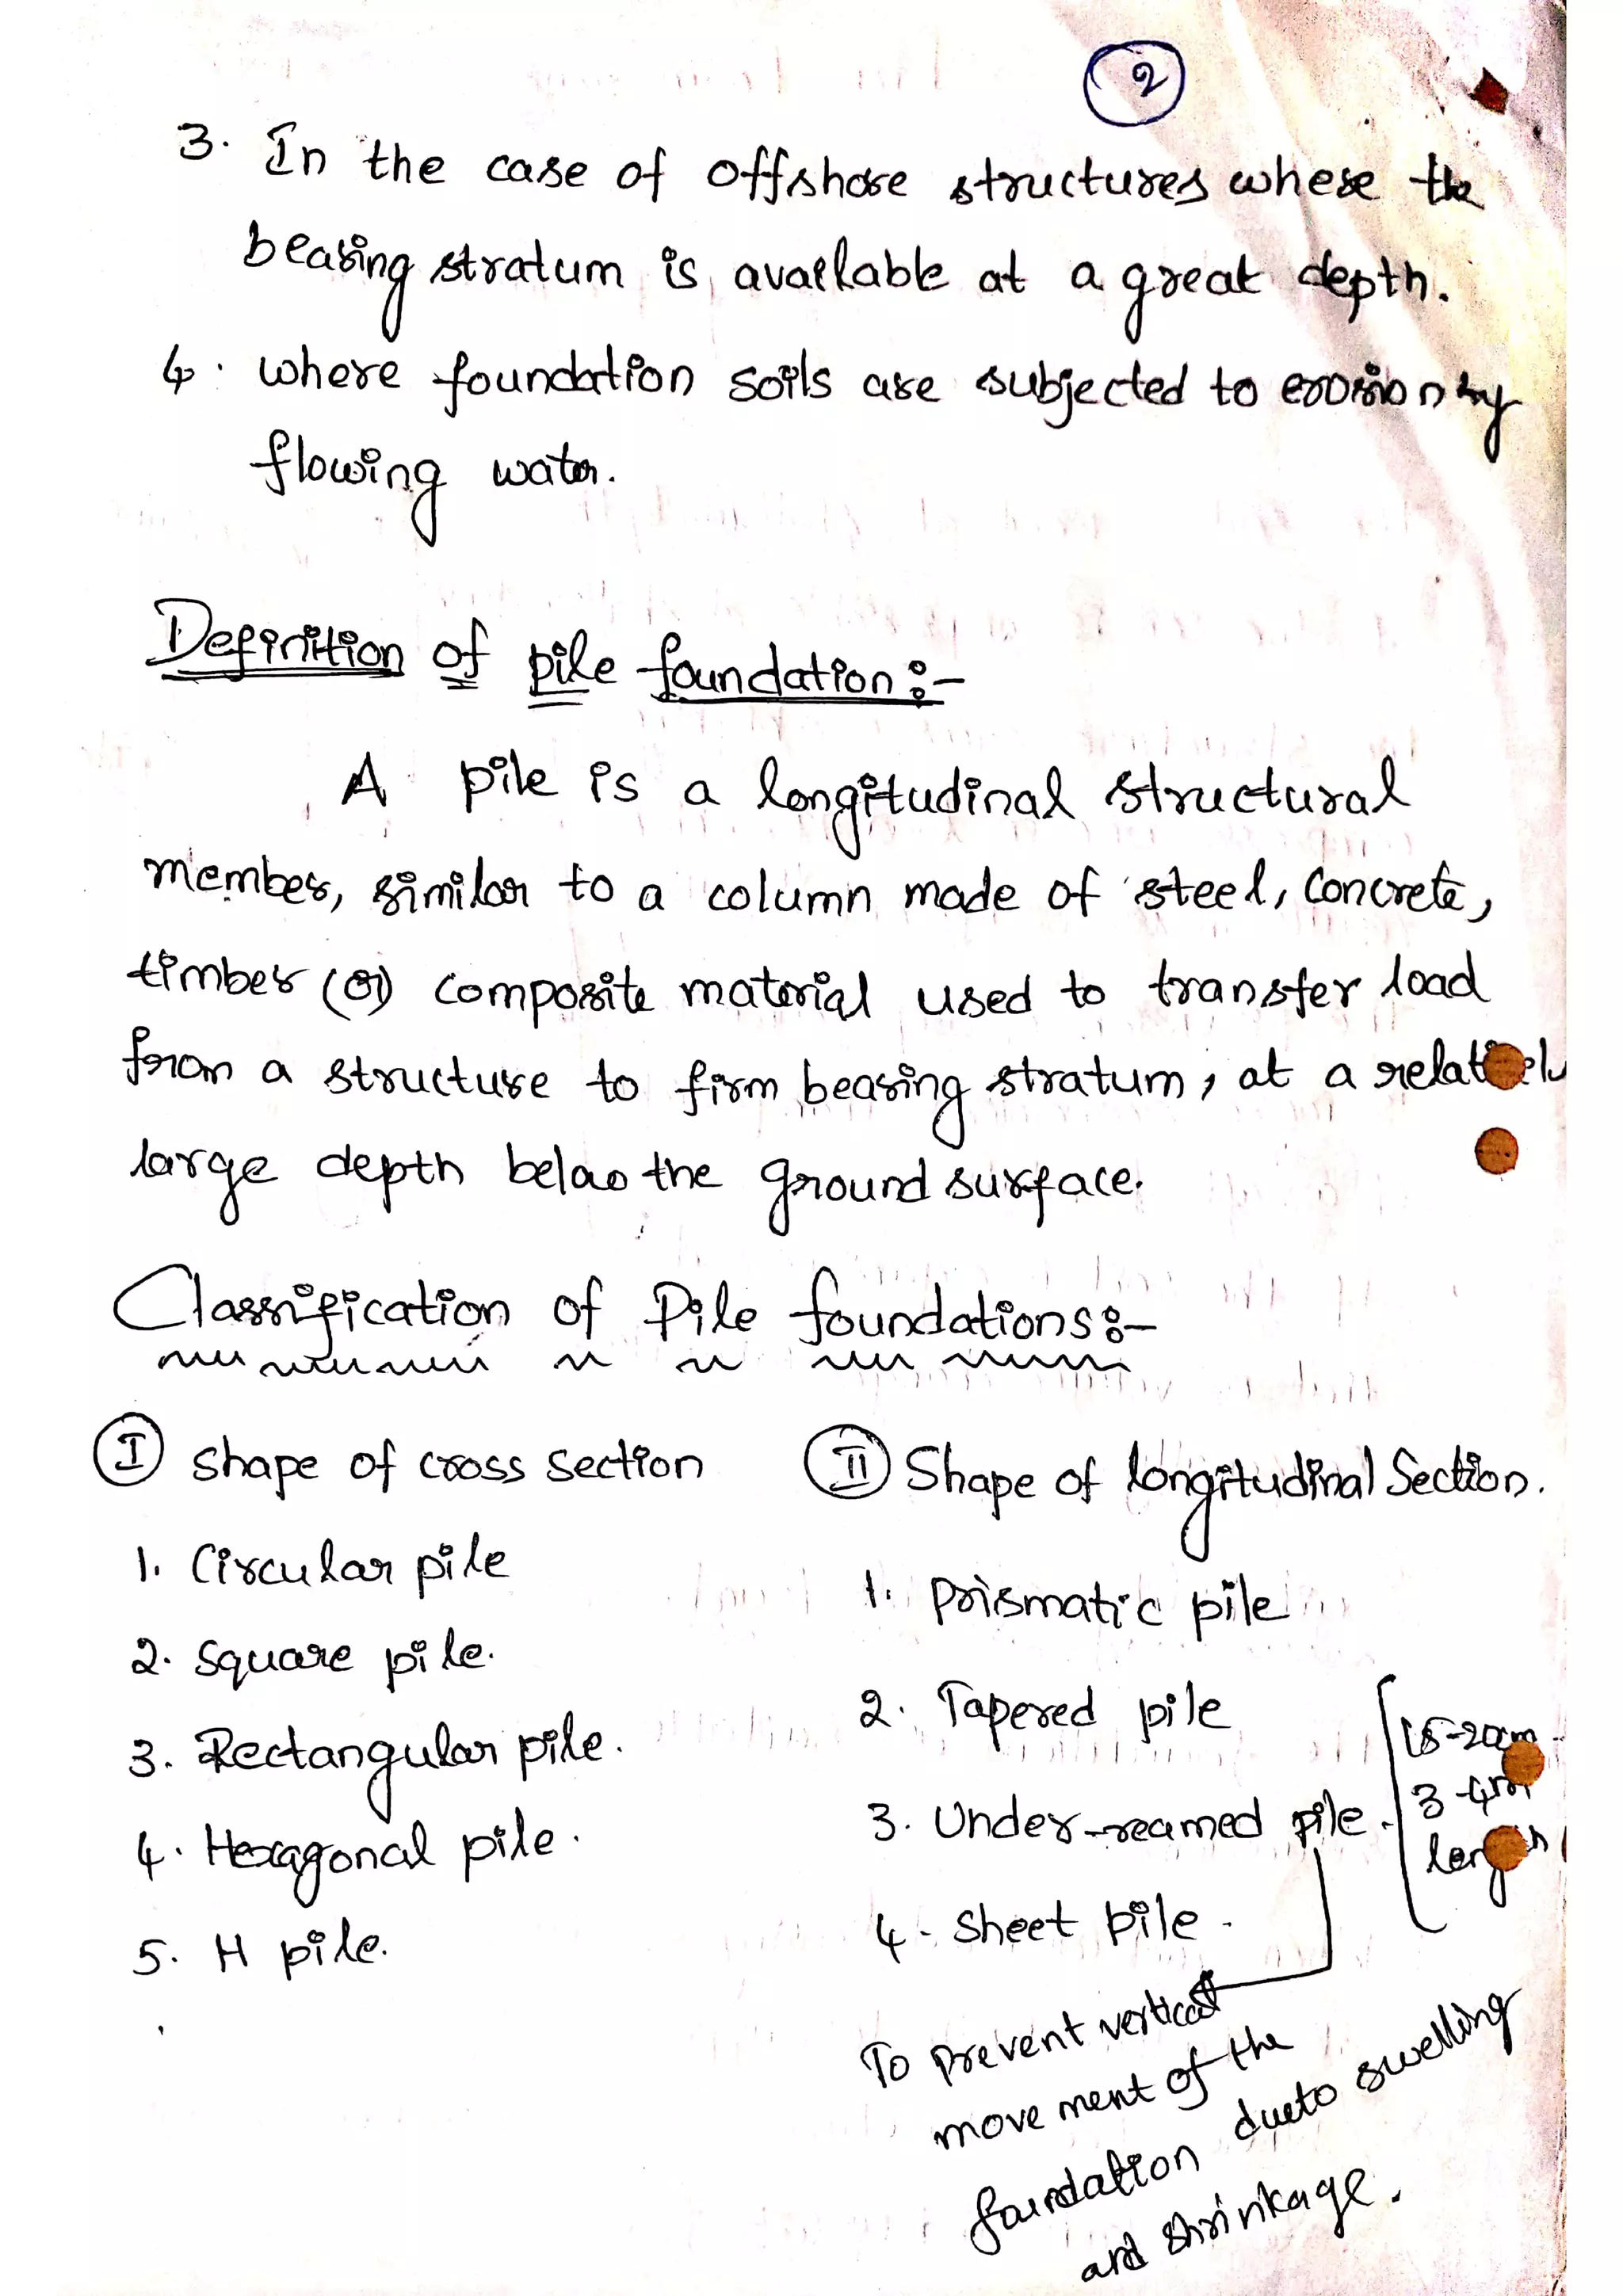 2
3. In the case of offshore structures where the
bearing stratum is available at a great depth.
4. where foundation soils are subjected to erosion by
flowing water.
Definition of pile foundation:-
A pile is a longitudinal structural
member, similar to a column made of steel, Concrete,
timber (or) composite material used to transfer load
from a structure to firm bearing stratum, at a
large depth below the ground surface.
Classification of Pile foundations:-
I shape of cross section
1. Circular pile
2. Square pile.
3. Rectangular pile.
4. Hexagonal pile.
5. H pile.
II Shape of longitudinal Section.
1. Prismatic pile
2. Tapered pile
3. Under-reamed pile.
4. Sheet pile.
15-20cm
3-4m
To prevent vertical
movement of the
foundation due to swelling
and shrinkage.